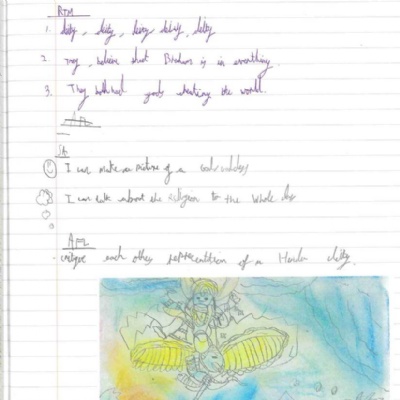 RTM
1. deity, deity, deity, deity
2. They, believe that Brahman is in everything.
3. They both had gods creating the world.
I can make a picture of a
I can talk about the religion to the whole class
AFL
critique each others representation of a Hindu deity.